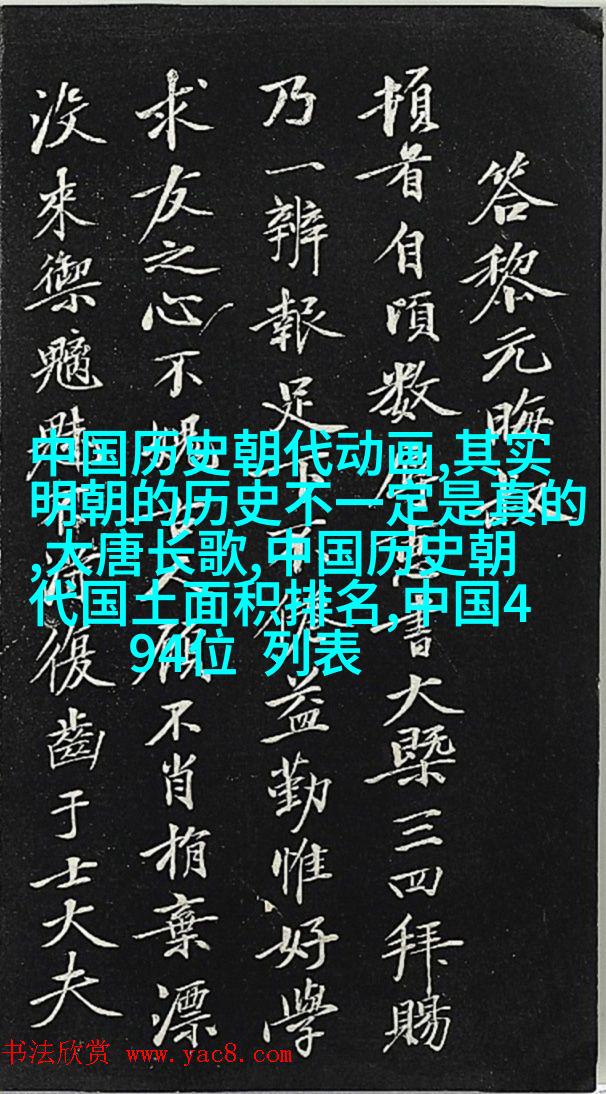 答黎元晦叔
頓首自頃数惠書大槩三四拜賜
乃一辨報足下益勤惟好學
求友之心不顧不肖捐棄漂
没來禦魑魅復齒于士大夫
中国历史朝代动画,其实
明朝的历史不一定是真的
,大唐长歌,中国历史朝
代国土面积排名,中国4
94位 列表
书法欣赏 www.yac8.com